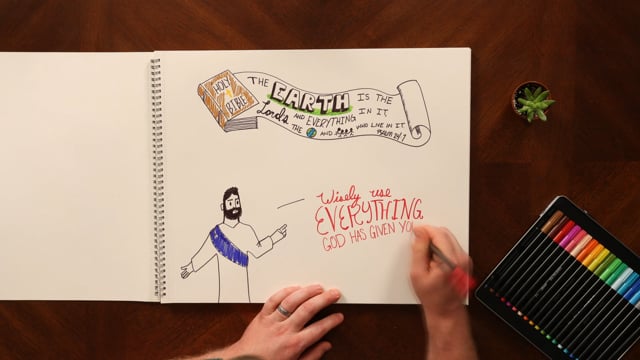 HOLY
BIBLE
THE EARTH IS THE
Lords AND EVERYTHING IN IT
THE AND WHO LIVE IN IT
PSALM 24:1
Wisely use
EVERYTHING
GOD HAS GIVEN YOU